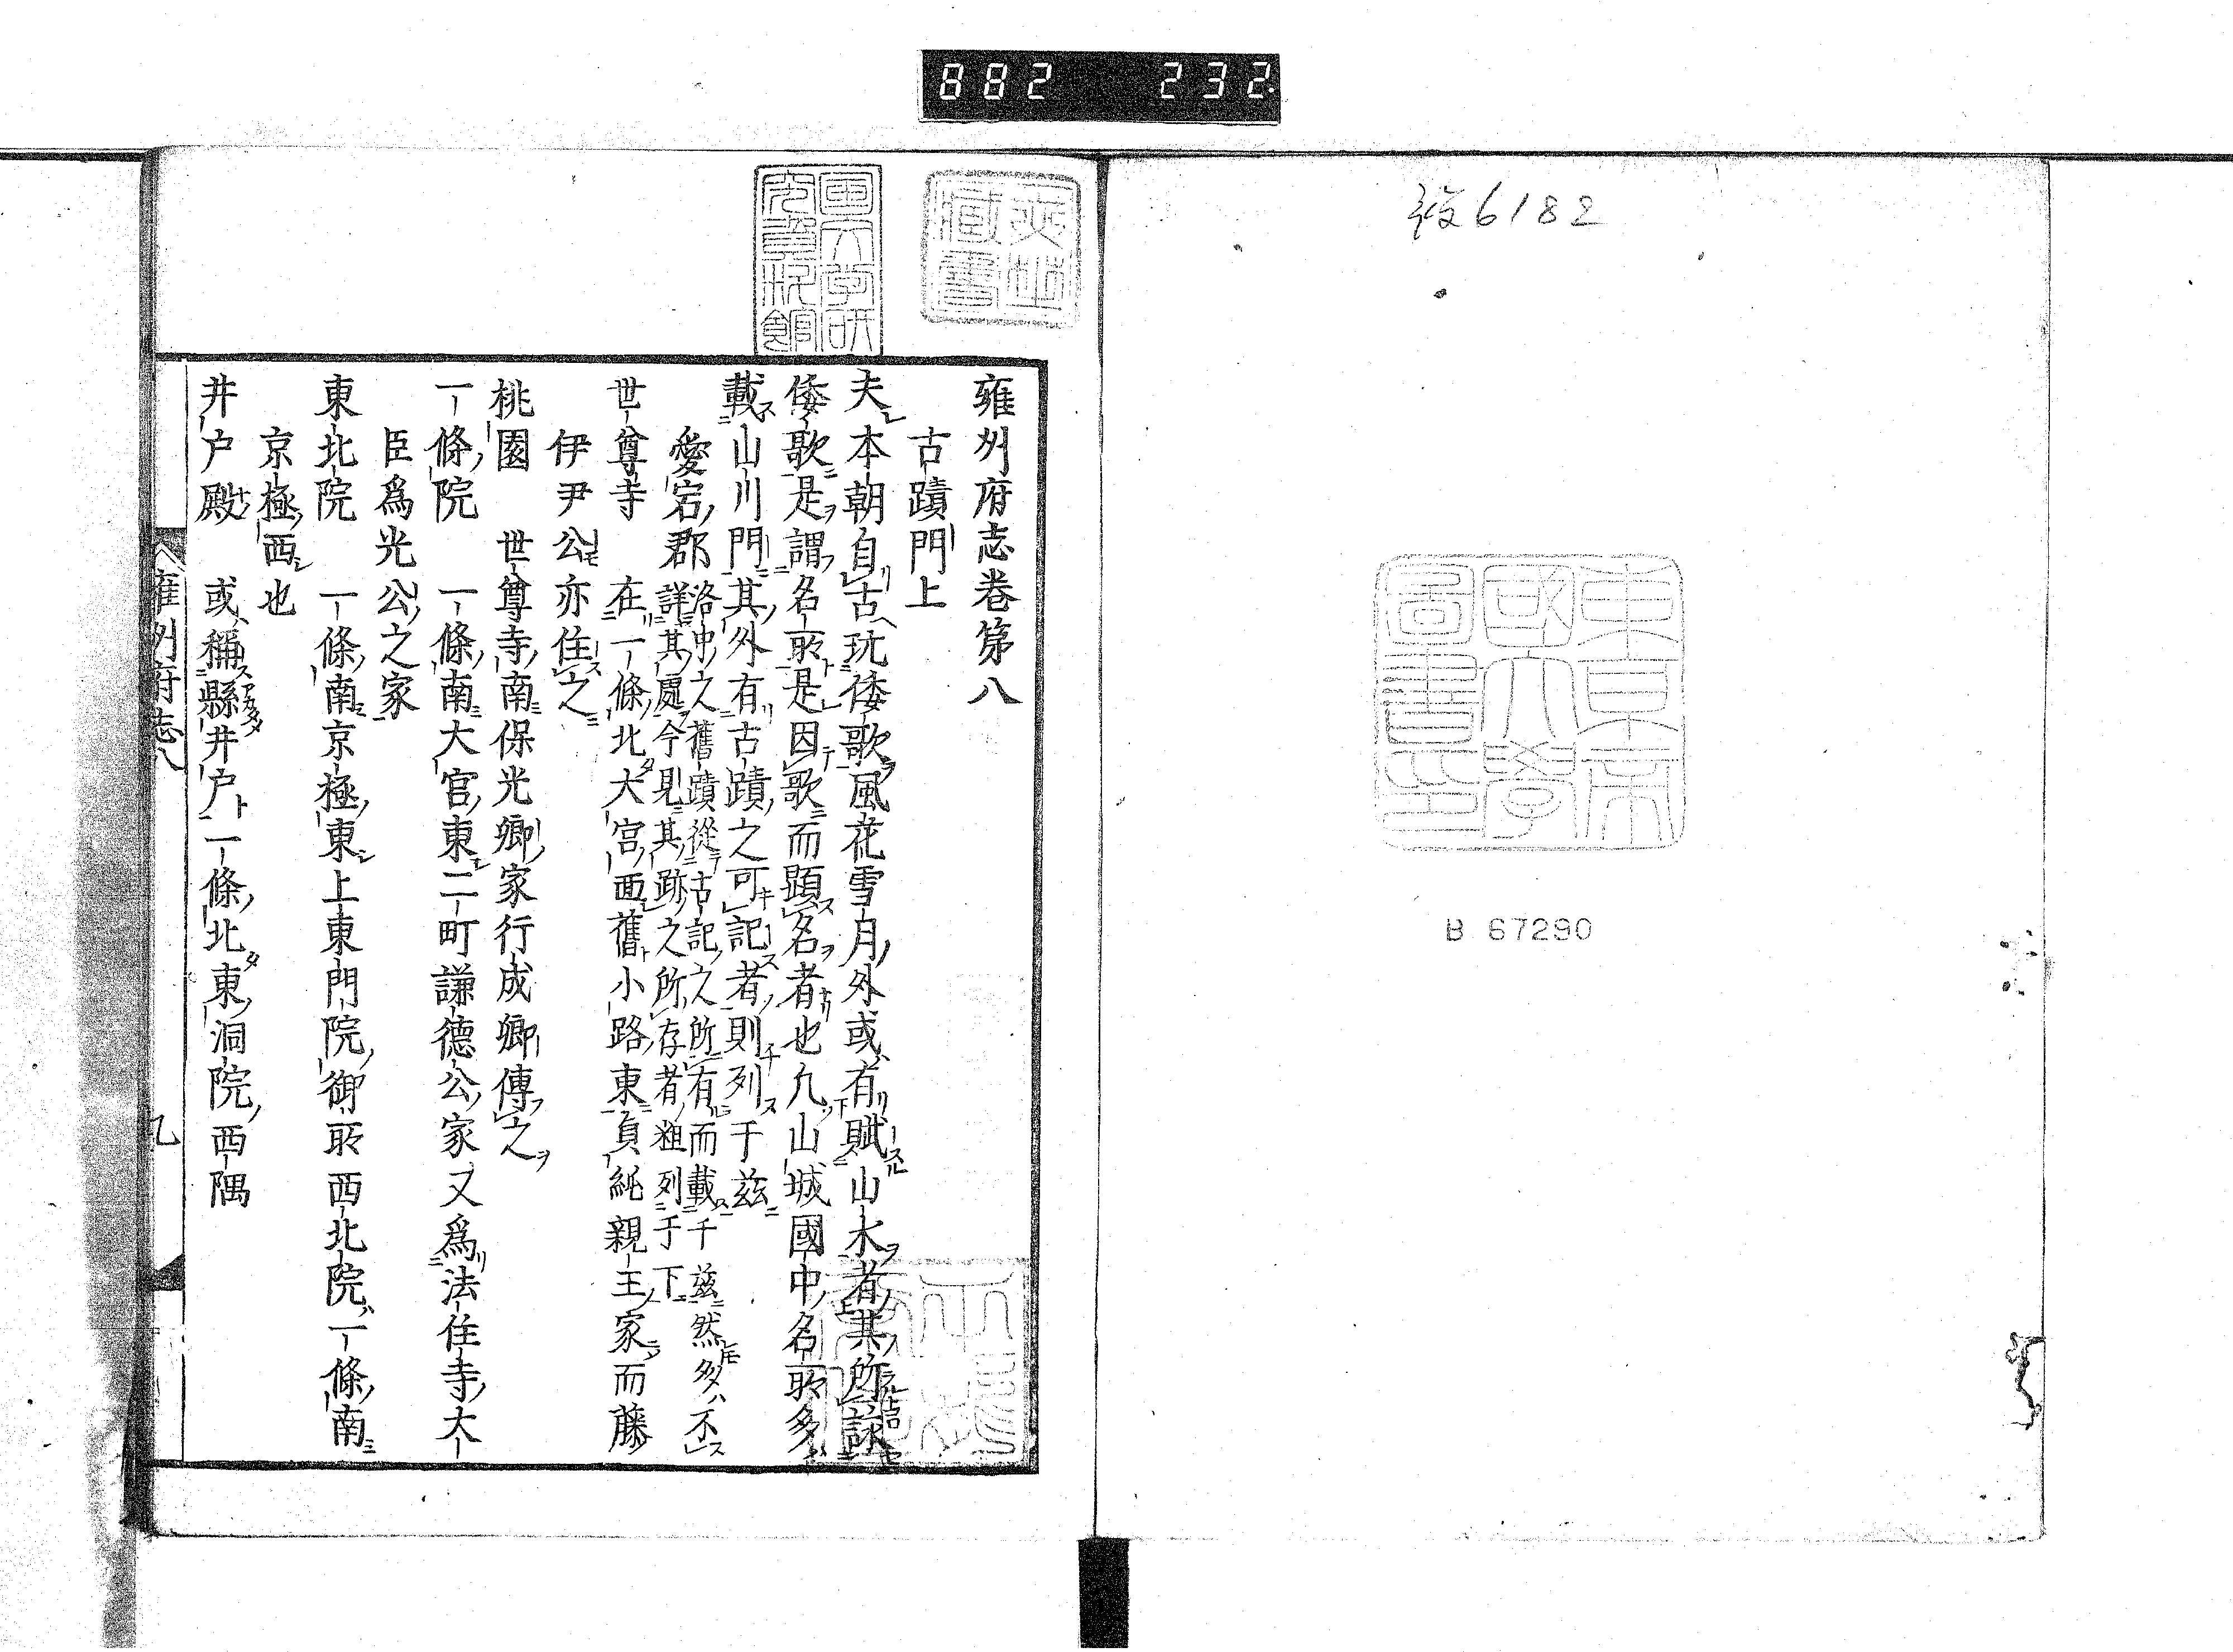 882 232
複6182
東京帝
國大學
圖書印
B 67290
雍州府志巻第八
古蹟門上
夫本朝自古玩倭歌風花雪月外或有賦山水者其所詠
倭歌是謂名所是因歌而顕名者也凢山城國中名所多
載山川門其外有古蹟之可記者則列于兹
愛宕郡
洛中之舊蹟從古記之所有而載于兹然多不
詳其處今見其跡之所存者粗列于下
世尊寺 在一條北大宮西舊小路東貞純親王家而藤
伊尹公亦住之
桃園 世尊寺南保光卿家行成卿傳之
一條院 一條南大宮東二町謙德公家又爲法住寺大
臣爲光公之家
東北院 一條南京極東上東門院御所西北院一條南
京極西也
井戸殿 或稱縣井戸一條北東洞院西隅
雍州府志八